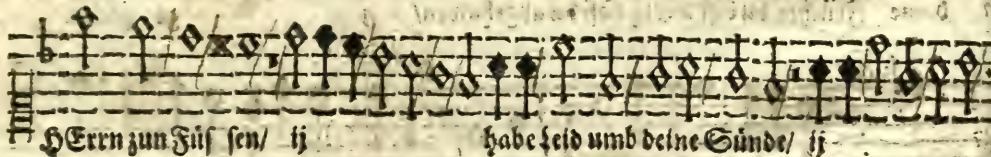 HErrn zun Füſ ſen/ ij habe Leid umb deine Sünde/ ij